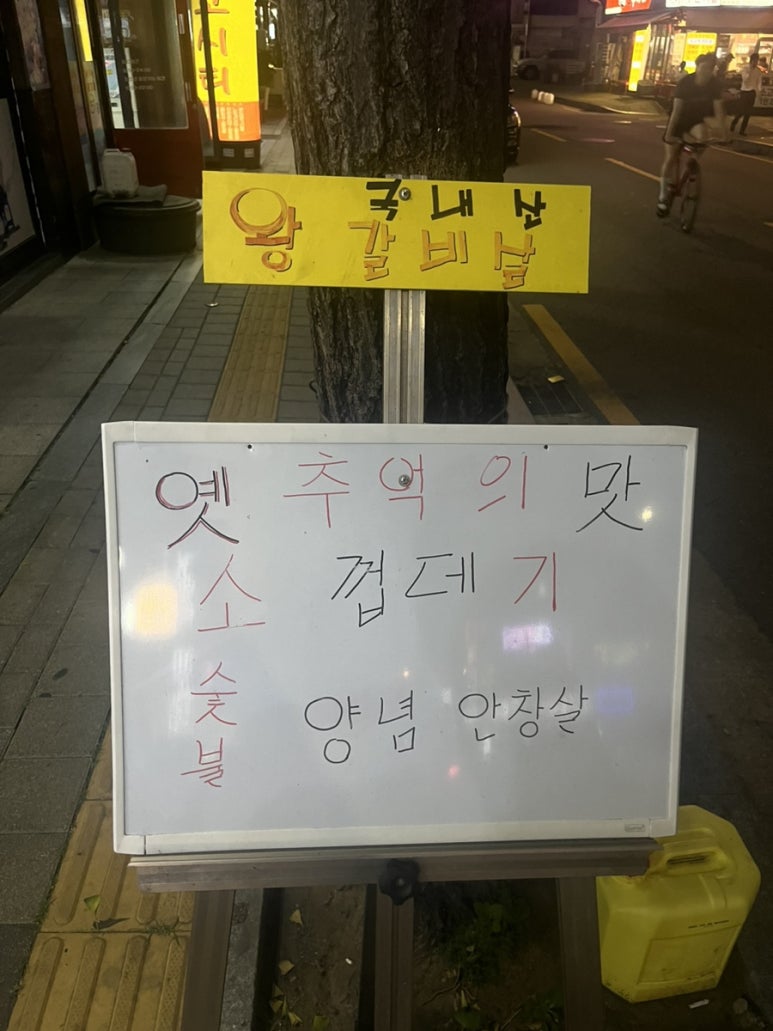 왕 갈비살
옛 추억의 맛
소 껍데기
숯불 양념 안창살